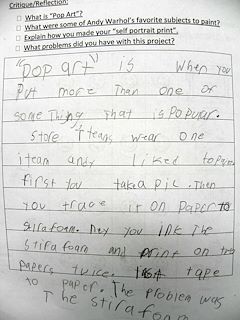 Critique/Reflection:
What is "Pop Art"?
What were some of Andy Warhol's favorite subjects to paint?
Explain how you made your "self portrait print".
What problems did you have with this project?
"Pop art" is when you
put more then one of
some thing that is popular.
store iteams wear one
iteam andy liked to paint
first you take a pic. Then
you trace it on Paper to
stirafoam. you ink the
stirafoam and print on
papers twice. tape
to paper. The problem was
The stirafoam